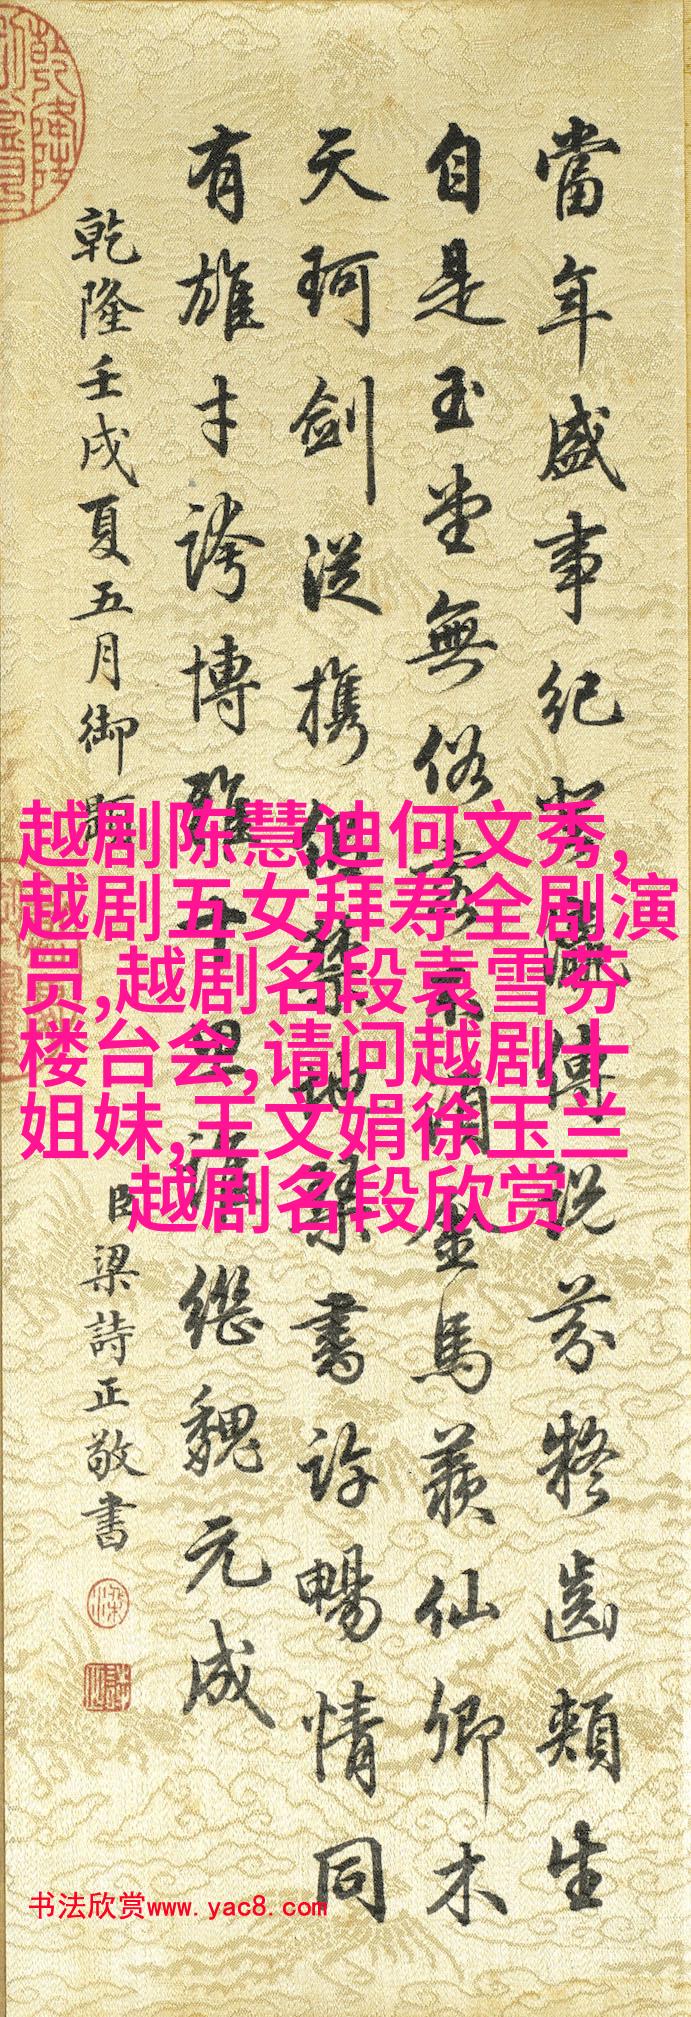 當年盛事紀登瀛傳說芬齒頰生
自是玉堂無俗客不須金馬羨仙卿木
天珂劍從攜禁地琴書許暢情同
有雄才誇博雅十思誰繼魏元成
乾隆壬戌夏五月御題
臣梁詩正敬書
越剧陈慧迪何文秀,
越剧五女拜寿全剧演
员,越剧名段袁雪芬
楼台会,请问越剧十
姐妹,王文娟徐玉兰
越剧名段欣赏
书法欣赏www.yac8.com